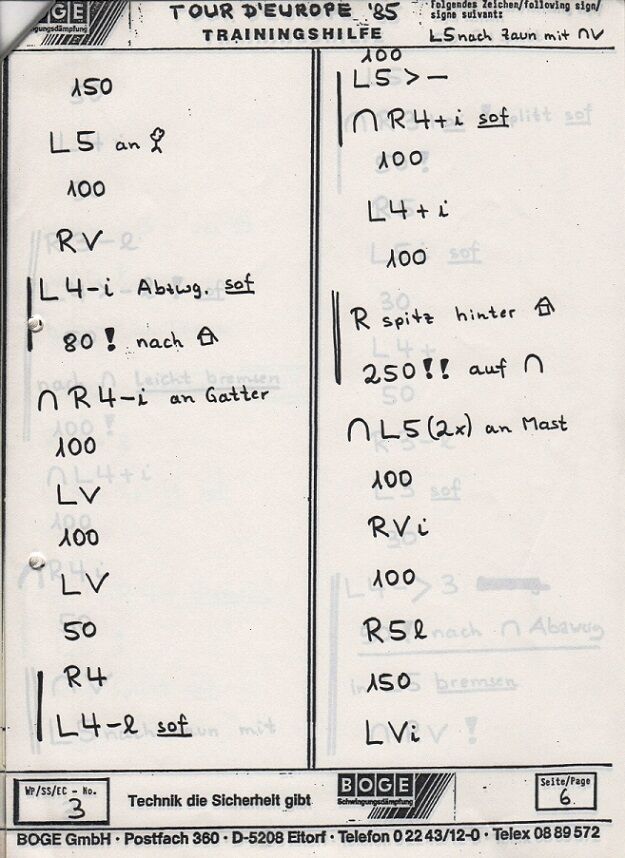 BOGE
TOUR D'EUROPE '85
TRAININGSHILFE
Folgendes Zeichen/following sign/
signe suivant:
L5 nach Zaun mit ∩V
150
L5 an
100
RV
L4-i Abzwg. sof
80! nach
∩R4-i an Gatter
100
LV
100
LV
50
R4
L4-l sof
100
L5 > –
∩R4+i sof
100
L4+i
100
R spitz hinter
250!! auf ∩
∩L5(2x) an Mast
100
RVi
100
R5l
150
LVi
WP/SS/EC - No.
3
Technik die Sicherheit gibt
BOGE
Schwingungsdämpfung
Seite/Page
6
BOGE GmbH · Postfach 360 · D-5208 Eitorf · Telefon 0 22 43/12-0 · Telex 08 89 572